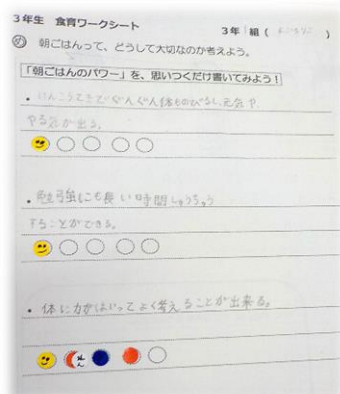 3年生 食育ワークシート
3年1組( )
め 朝ごはんって、どうして大切なのか考えよう。
「朝ごはんのパワー」を、思いつくだけ書いてみよう!
・けんこうてきでぐんぐん体ものびるし、元気や
やる気が出る。
・勉強にも長い時間しゅうちゅう
することができる。
・体に力がはいってよく考えることが出来る。